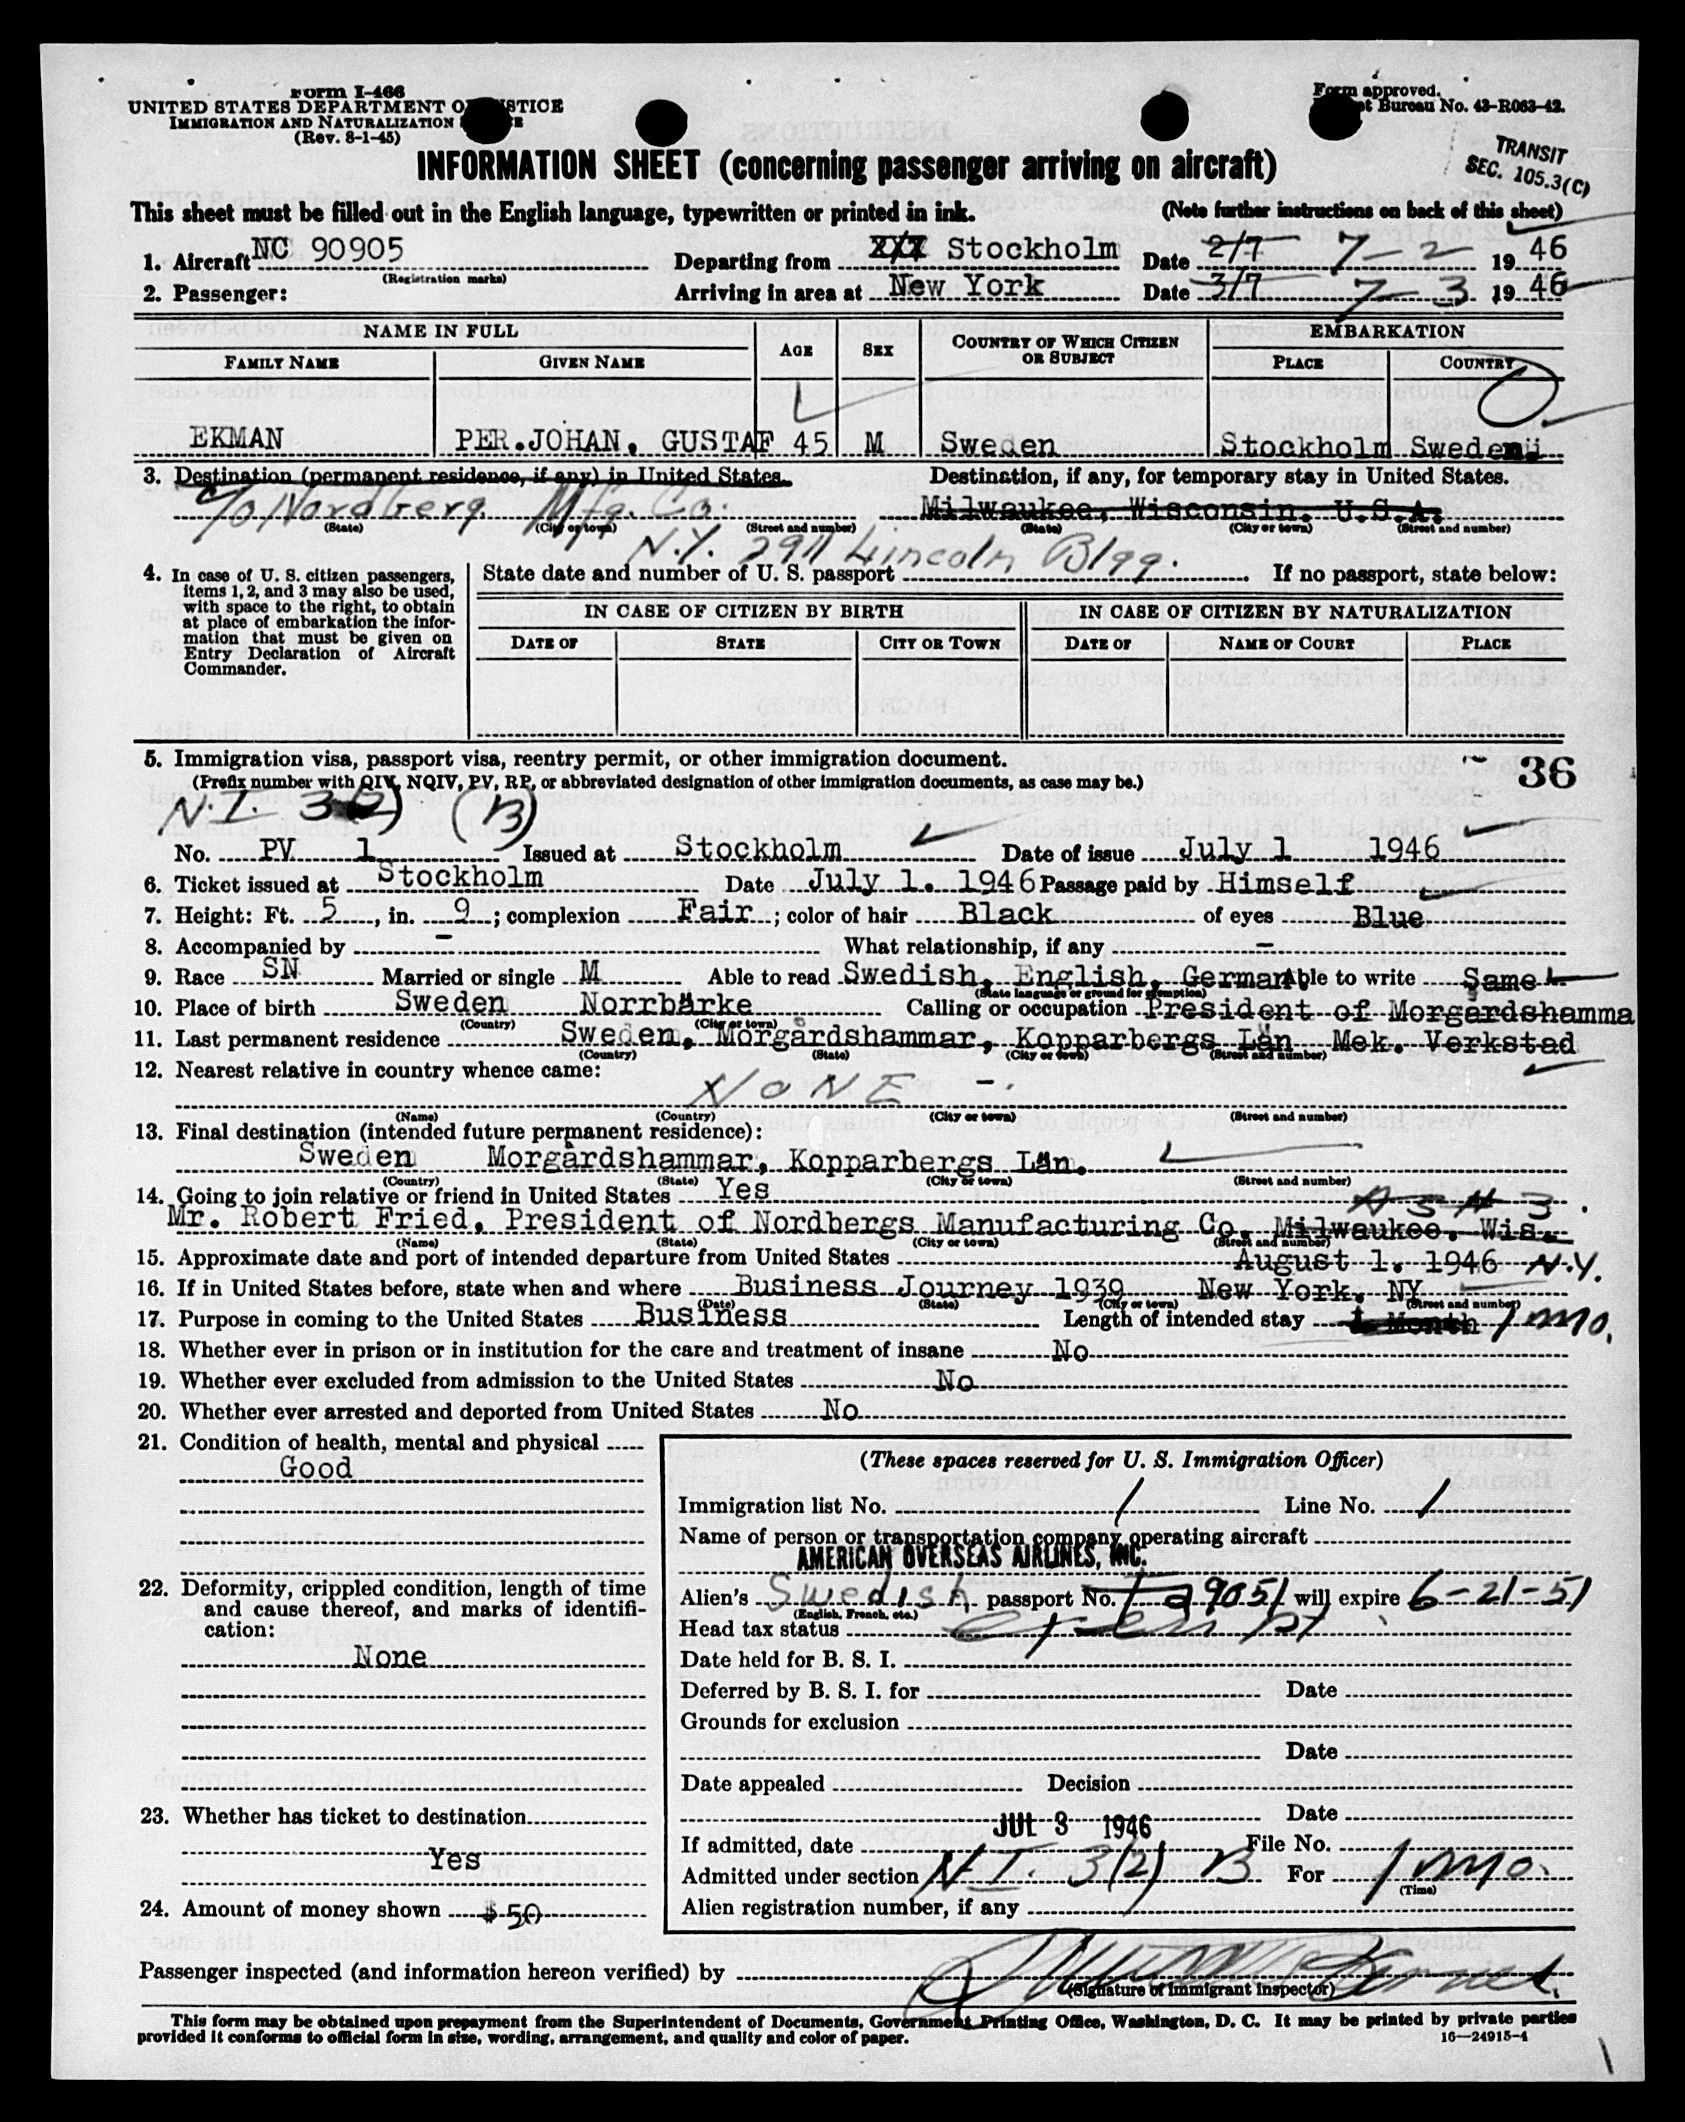 Form I-466
UNITED STATES DEPARTMENT OF JUSTICE
IMMIGRATION AND NATURALIZATION
(Rev. 8-1-45)
Form approved.
Bureau No. 43-R063-42.
TRANSIT
SEC. 105.3(C)
INFORMATION SHEET (concerning passenger arriving on aircraft)
This sheet must be filled out in the English language, typewritten or printed in ink. (Note further instructions on back of this sheet)
1. Aircraft NC 90905 Departing from Stockholm Date 2/7 7-2 19 46
(Registration marks)
2. Passenger: Arriving in area at New York Date 3/7 7-3 19 46
NAME IN FULL AGE SEX COUNTRY OF WHICH CITIZEN OR SUBJECT EMBARKATION
FAMILY NAME GIVEN NAME PLACE COUNTRY
EKMAN PER.JOHAN, GUSTAF 45 M Sweden Stockholm Sweden
3. Destination (permanent residence, if any) in United States. Destination, if any, for temporary stay in United States.
c/o Nordberg Mfg. Co. Milwaukee, Wisconsin. U.S.A.
(State) (City or town) (Street and number) (State) (City or town) (Street and number)
N.Y. 2911 Lincoln Bldg.
4. In case of U. S. citizen passengers, items 1, 2, and 3 may also be used, with space to the right, to obtain at place of embarkation the information that must be given on Entry Declaration of Aircraft Commander.
State date and number of U. S. passport If no passport, state below:
IN CASE OF CITIZEN BY BIRTH IN CASE OF CITIZEN BY NATURALIZATION
DATE OF STATE CITY OR TOWN DATE OF NAME OF COURT PLACE
5. Immigration visa, passport visa, reentry permit, or other immigration document.
(Prefix number with QIV, NQIV, PV, RP, or abbreviated designation of other immigration documents, as case may be.)
36
N.I. 3(2) (B)
No. PV 1 Issued at Stockholm Date of issue July 1 1946
6. Ticket issued at Stockholm Date July 1. 1946 Passage paid by Himself
7. Height: Ft. 5, in. 9; complexion Fair; color of hair Black of eyes Blue
8. Accompanied by - What relationship, if any -
9. Race SN Married or single M Able to read Swedish, English, German Able to write Same
(State language or ground for exemption)
10. Place of birth Sweden Norrbärke Calling or occupation President of Morgardshamma
(Country) (City or town)
11. Last permanent residence Sweden, Morgårdshammar, Kopparbergs Län Mek. Verkstad
(Country) (State) (City or town) (Street and number)
12. Nearest relative in country whence came:
NONE -.
(Name) (Country) (City or town) (Street and number)
13. Final destination (intended future permanent residence):
Sweden Morgårdshammar, Kopparbergs Län.
(Country) (State) (City or town) (Street and number)
14. Going to join relative or friend in United States Yes
As # 3.
Mr. Robert Fried, President of Nordbergs Manufacturing Co, Milwaukee. Wis.
(Name) (State) (City or town) (Street and number)
15. Approximate date and port of intended departure from United States August 1. 1946 N.Y.
16. If in United States before, state when and where Business Journey 1939 New York, NY
(Date) (State) (City or town) (Street and number)
17. Purpose in coming to the United States Business Length of intended stay 1 Month 1 mo.
18. Whether ever in prison or in institution for the care and treatment of insane No
19. Whether ever excluded from admission to the United States No
20. Whether ever arrested and deported from United States No
21. Condition of health, mental and physical
Good
22. Deformity, crippled condition, length of time and cause thereof, and marks of identification:
None
23. Whether has ticket to destination
Yes
24. Amount of money shown $ 50
(These spaces reserved for U. S. Immigration Officer)
Immigration list No. 1 Line No. 1
Name of person or transportation company operating aircraft
AMERICAN OVERSEAS AIRLINES, INC.
Alien's Swedish passport No. 9051 will expire 6-21-51
(English, French, etc.)
Head tax status exempt
Date held for B. S. I.
Deferred by B. S. I. for Date
Grounds for exclusion
Date
Date appealed Decision
Date
If admitted, date JUL 3 1946 File No.
Admitted under section N.I. 3(2) B For 1 mo.
(Time)
Alien registration number, if any
Passenger inspected (and information hereon verified) by
(Signature of Immigrant Inspector)
This form may be obtained upon prepayment from the Superintendent of Documents, Government Printing Office, Washington, D. C. It may be printed by private parties
provided it conforms to official form in size, wording, arrangement, and quality and color of paper.
16—24915-4